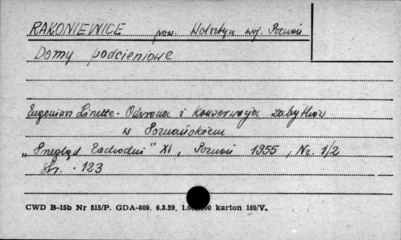 RAKONIEWICE pow. Wolsztyn woj. Poznań
Domy podcieniowe
Eugeniusz Linette - Ochrona i Konserwacja zabytków
w Poznańskiem
"Przegląd Zachodni" XI, Poznań 1955, Nr. 1/2
str. 123
CWD B-15b Nr 515/P. GDA-809. 6.3.59. karton 180/V.